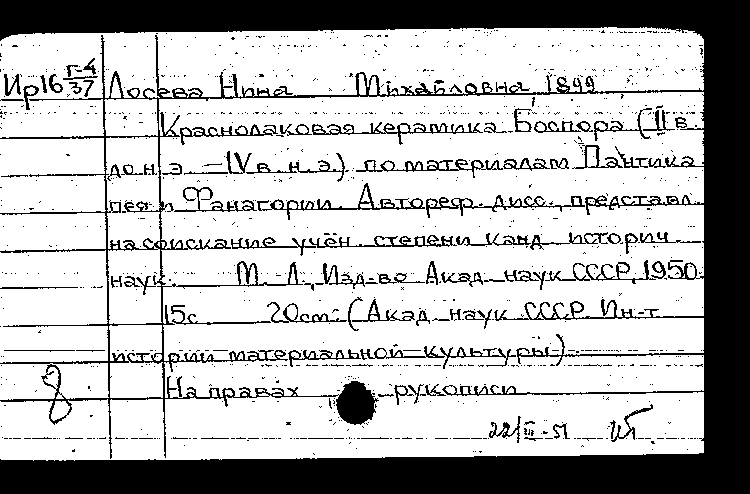 Ир16 Г-4/37 Лосева, Нина Михайловна, 1899
Краснолаковая керамика Боспора (II в.
до н. э. – IV в. н. э.) по материалам Пантика
пея и Фанагории. Автореф. дисс., представл.
на соискание учён. степени канд. историч.
наук. М.-Л., Изд-во Акад. наук СССР, 1950.
15с. 20см. (Акад. наук СССР. Ин-т
истории материальной культуры).
На правах рукописи
8
22/III-51